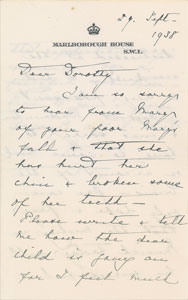 29. Sept-
1938
MARLBOROUGH HOUSE
S.W.1.
Dear Dorothy
I am so sorry
to hear from Mary
of your poor Mary's
fall & that she
has hurt her
chin & broken some
of her teeth –
Please write & tell
me how the dear
child is going on
for I feel much